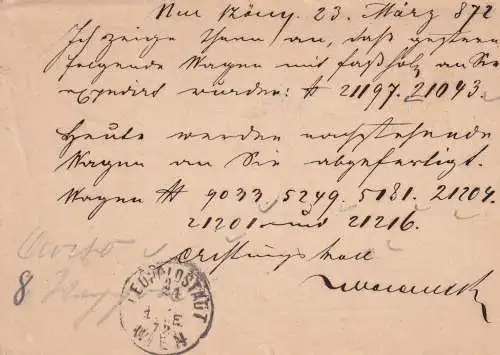 23. März 872
Ich zeige Ihnen an, daß gestern
folgende Wagen mit Faßholz an Sie
expedirt wurden: # 21197. 21043.
Heute werden nachstehende
Wagen an Sie abgefertigt.
Wagen # 9033. 5249. 5181. 21204.
21201 und 21216.
Achtungsvoll
8
LEOPOLDSTADT
WIEN